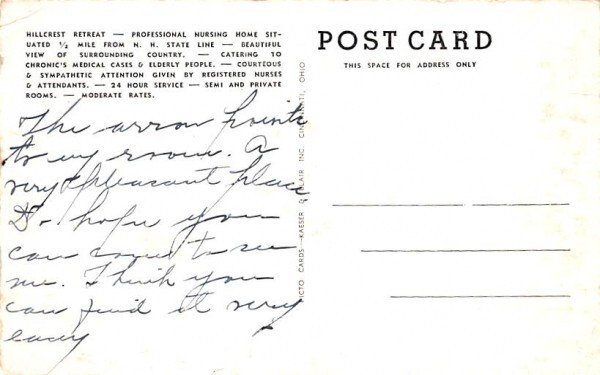 HILLCREST RETREAT — PROFESSIONAL NURSING HOME SIT-
UATED ½ MILE FROM N. H. STATE LINE — BEAUTIFUL
VIEW OF SURROUNDING COUNTRY. — CATERING TO
CHRONIC'S MEDICAL CASES & ELDERLY PEOPLE. — COURTEOUS
& SYMPATHETIC ATTENTION GIVEN BY REGISTERED NURSES
& ATTENDANTS. — 24 HOUR SERVICE — SEMI AND PRIVATE
ROOMS. — MODERATE RATES.
The arrow points
to my room. A
very pleasant place
I do hope you
can come to see
me. I think you
can find it very
easy
PICTO CARDS—KAESER & BLAIR INC. CINCINNATI, OHIO
POST CARD
THIS SPACE FOR ADDRESS ONLY